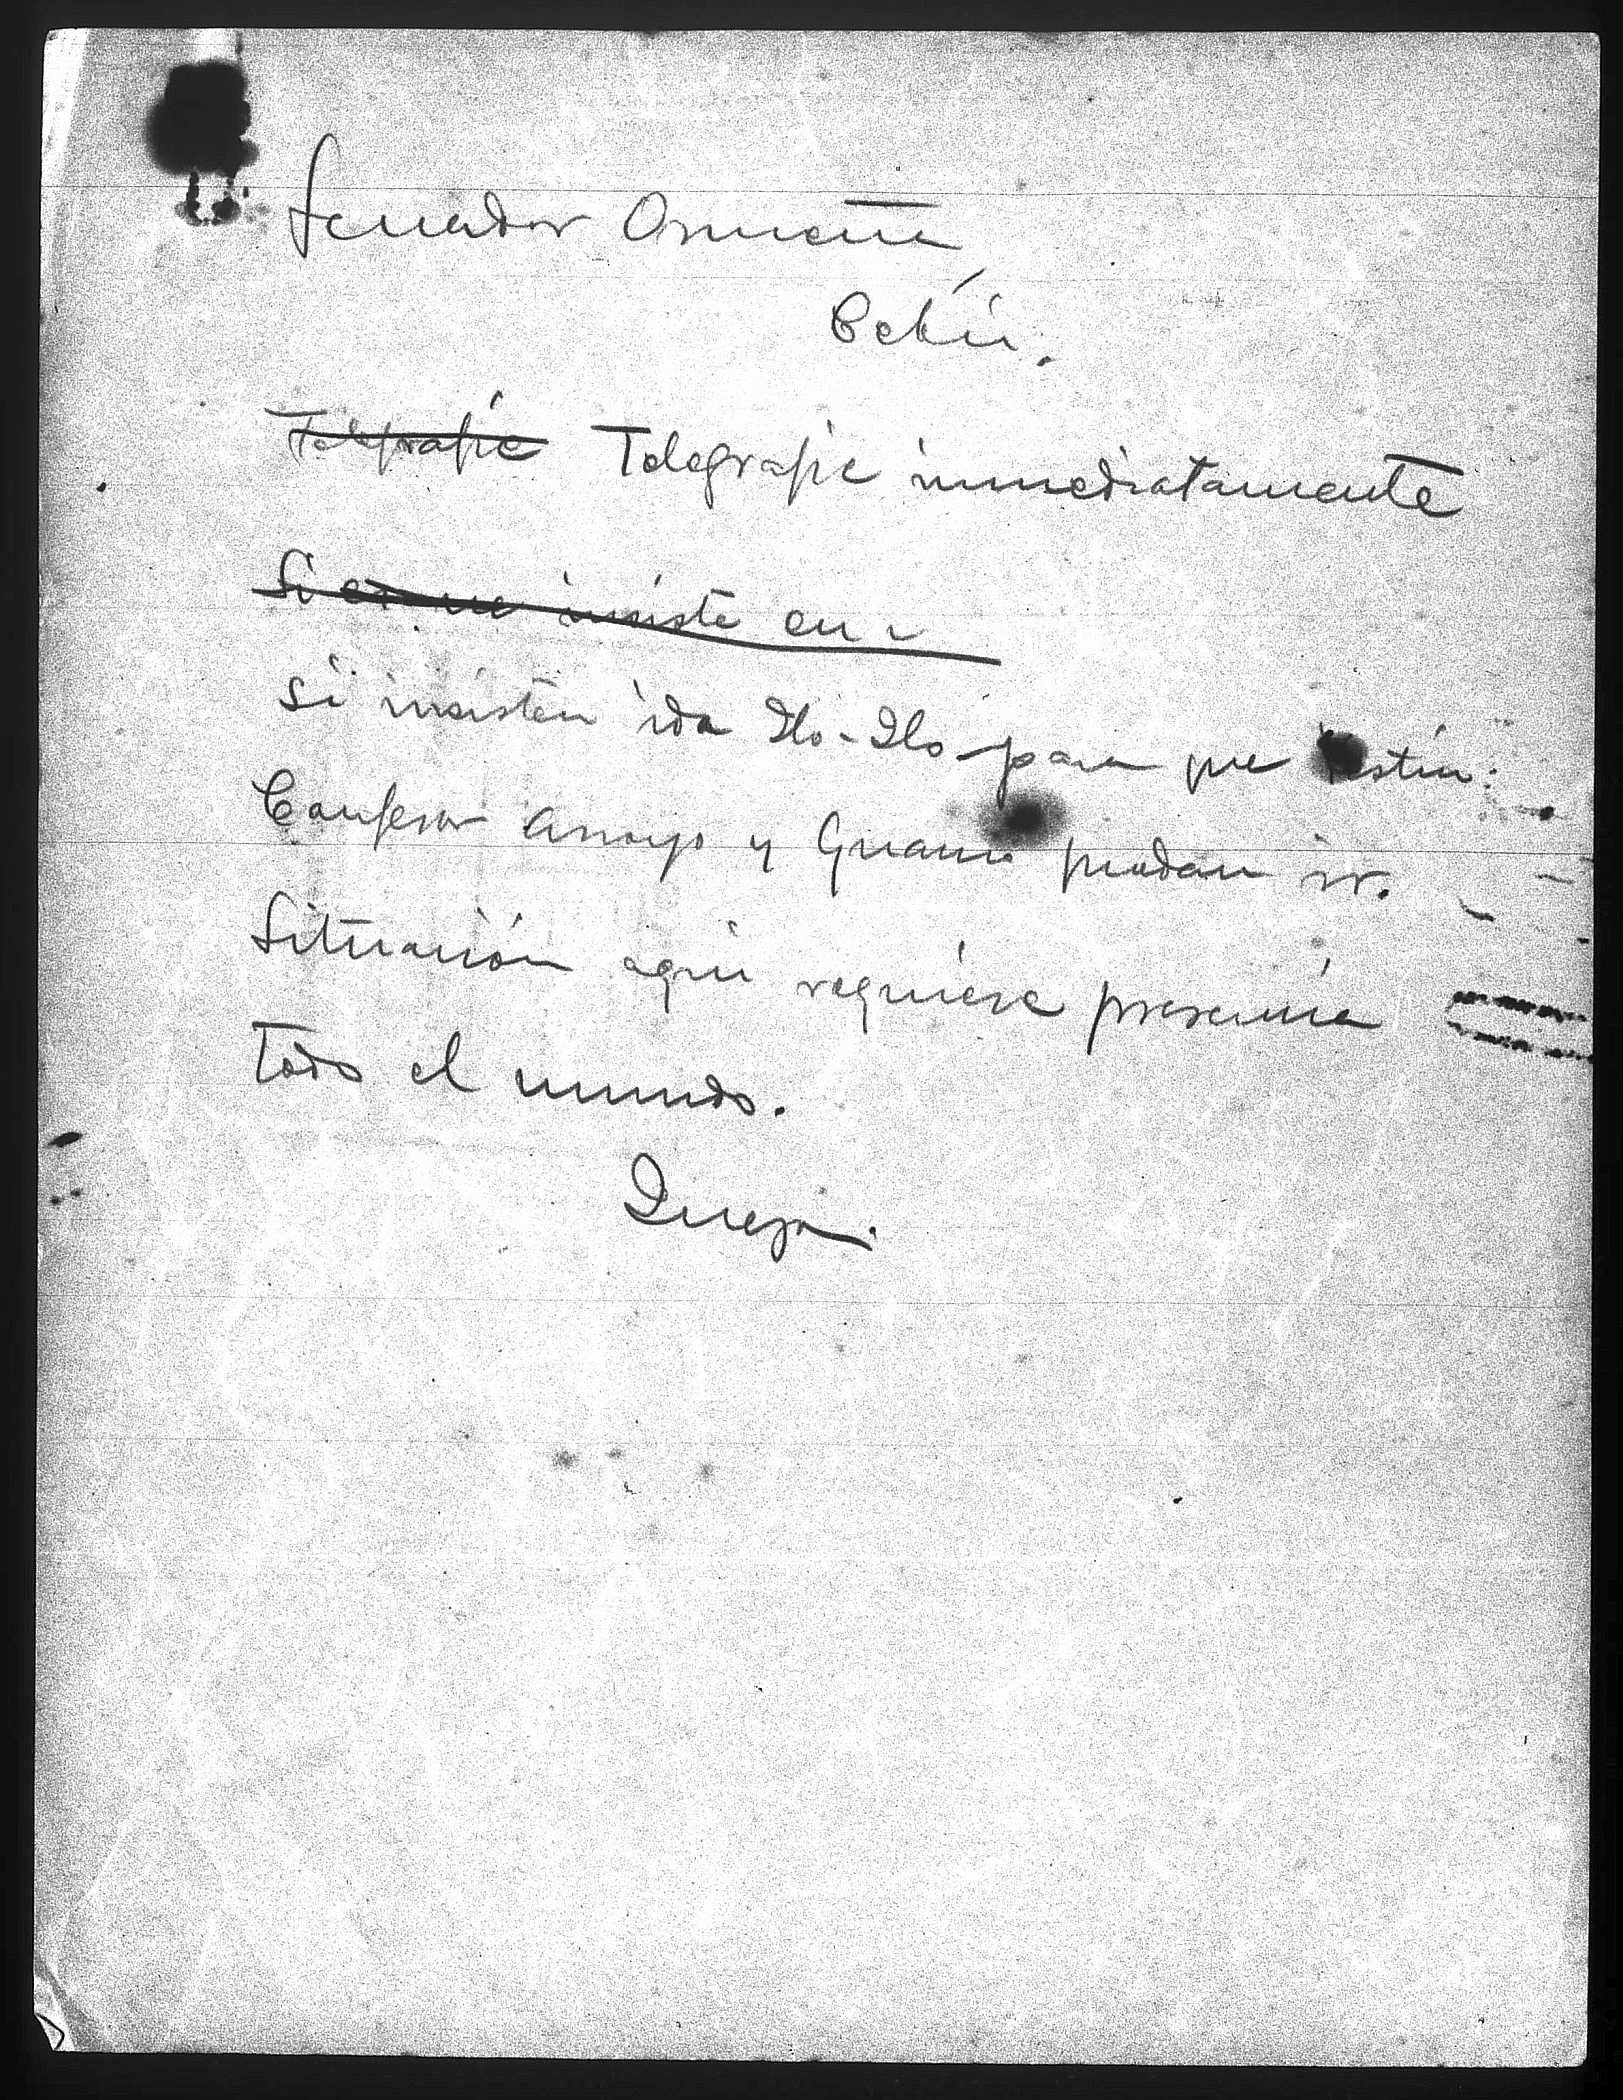 Senador Osmeña
Cebú.
Telegrafíe Telegrafíe inmediatamente
Si insiste en
si insisten ida Ilo-Ilo para que
Confesor Arroyo y puedan ir.
Situación aquí requiere presencia
todo el mundo.
Quezon.